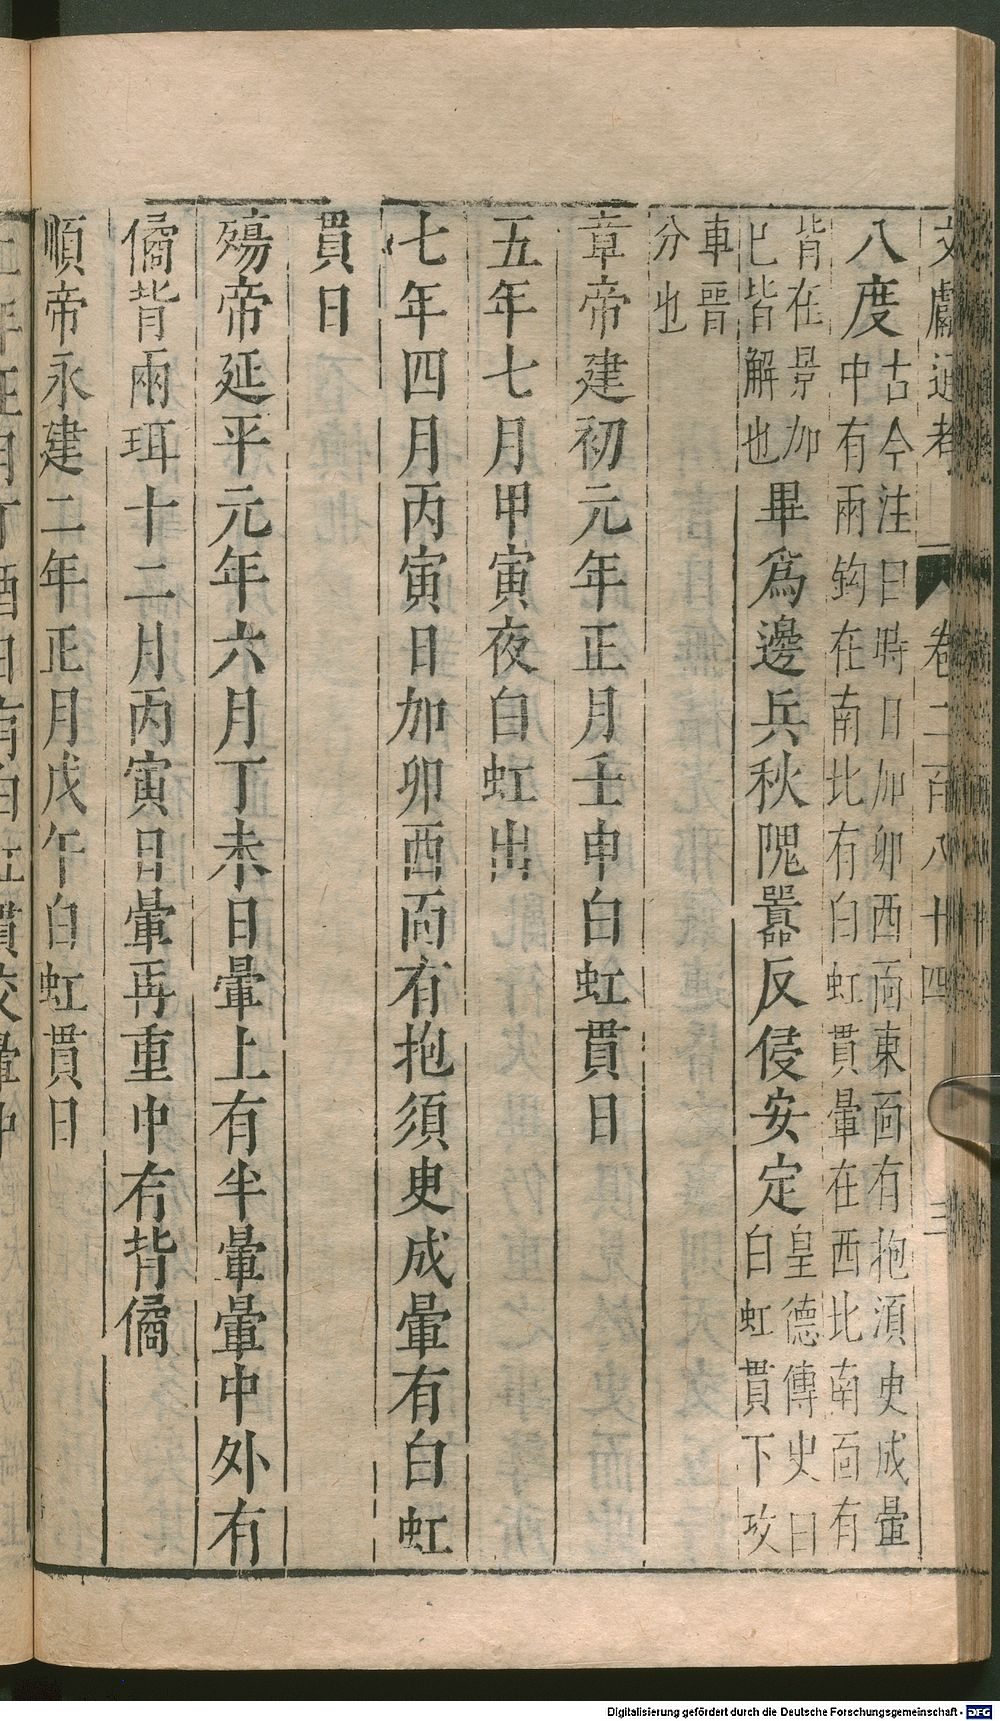 文獻通考 卷二百八十四 三
八度古今注曰時日加卯西面東面有抱須㬰成暈
中有兩鈎在南北有白虹貫暈在西北南面有
背在景加
巳皆解也畢爲邊兵秋隗囂反侵安定皇德傳史曰
白虹貫下攻
車晋
分也
章帝建初元年正月壬申白虹貫日
五年七月甲寅夜白虹出
七年四月丙寅日加卯西面有抱須㬰成暈有白虹
貫日
殤帝延平元年六月丁未日暈上有半暈暈中外有
僪背兩珥十二月丙寅日暈再重中有背僪
順帝永建二年正月戊午白虹貫日
Digitalisierung gefördert durch die Deutsche Forschungsgemeinschaft - DFG